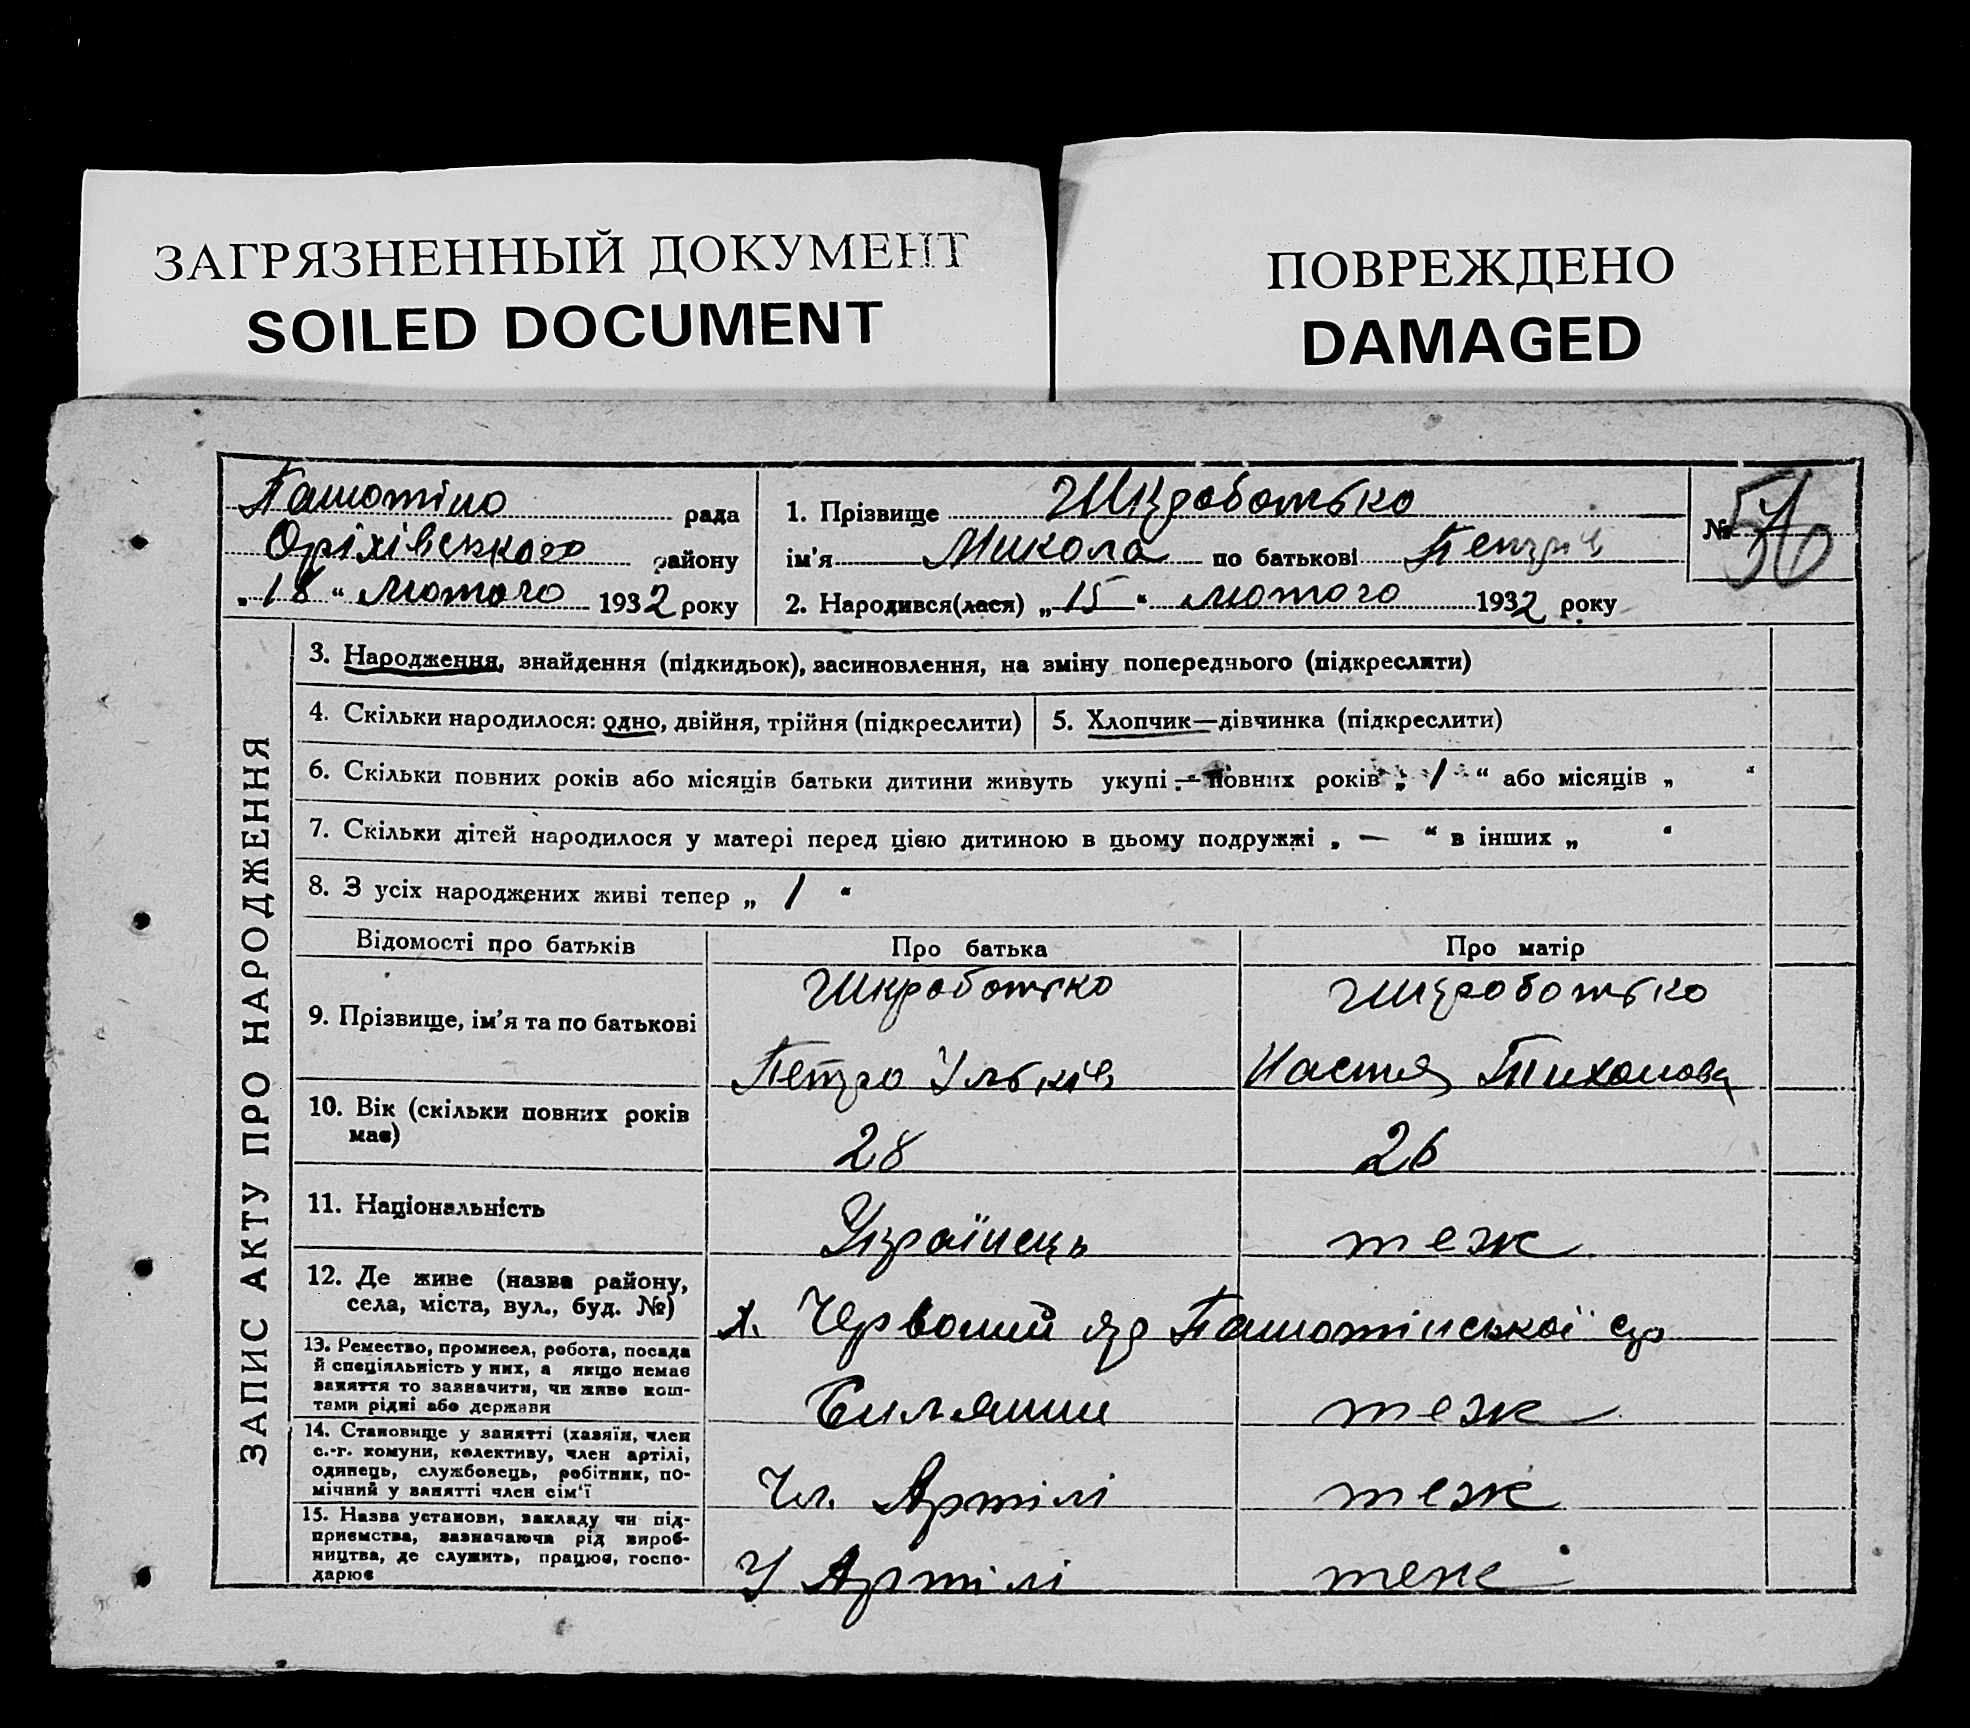 ЗАГРЯЗНЕННЫЙ ДОКУМЕНТ
SOILED DOCUMENT
ПОВРЕЖДЕНО
DAMAGED
рада
Оріхівського району
„18“ лютого 1932 року
1. Прізвище Шкроботько
ім'я Микола по батькові Петрів
2. Народився(лася) „15“ лютого 1932 року
№
ЗАПИС АКТУ ПРО НАРОДЖЕННЯ
3. Народження, знайдення (підкидьок), засиновлення, на зміну попереднього (підкреслити)
4. Скільки народилося: одно, двійня, трійня (підкреслити)
5. Хлопчик—дівчинка (підкреслити)
6. Скільки повних років або місяців батьки дитини живуть укупі — повних років „1“ або місяців „ “
7. Скільки дітей народилося у матері перед цією дитиною в цьому подружжі „ — “ в інших „ “
8. З усіх народжених живі тепер „ 1 “
Відомості про батьків Про батька Про матір
9. Прізвище, ім'я та по батькові
Шкроботько Шкроботько
Петро Ільків Настя Тихонова
10. Вік (скільки повних років
має)
28 26
11. Національність
Українець теж
12. Де живе (назва району,
села, міста, вул., буд. №)
х. Червоний яр
13. Ремество, промисел, робота, посада
й спеціяльність у них, а якщо немає
заняття то зазначити, чи живе кош-
тами рідні або держави
теж
14. Становище у занятті (хазяїн, член
с.-г. комуни, колективу, член артілі,
одинець, службовець, робітник, по-
мічний у занятті член сім'ї
Чл. Артілі теж
15. Назва установи, закладу чи під-
приємства, зазначаючи рід вироб-
ництва, де служить, працює, госпо-
дарює
У Артілі теж